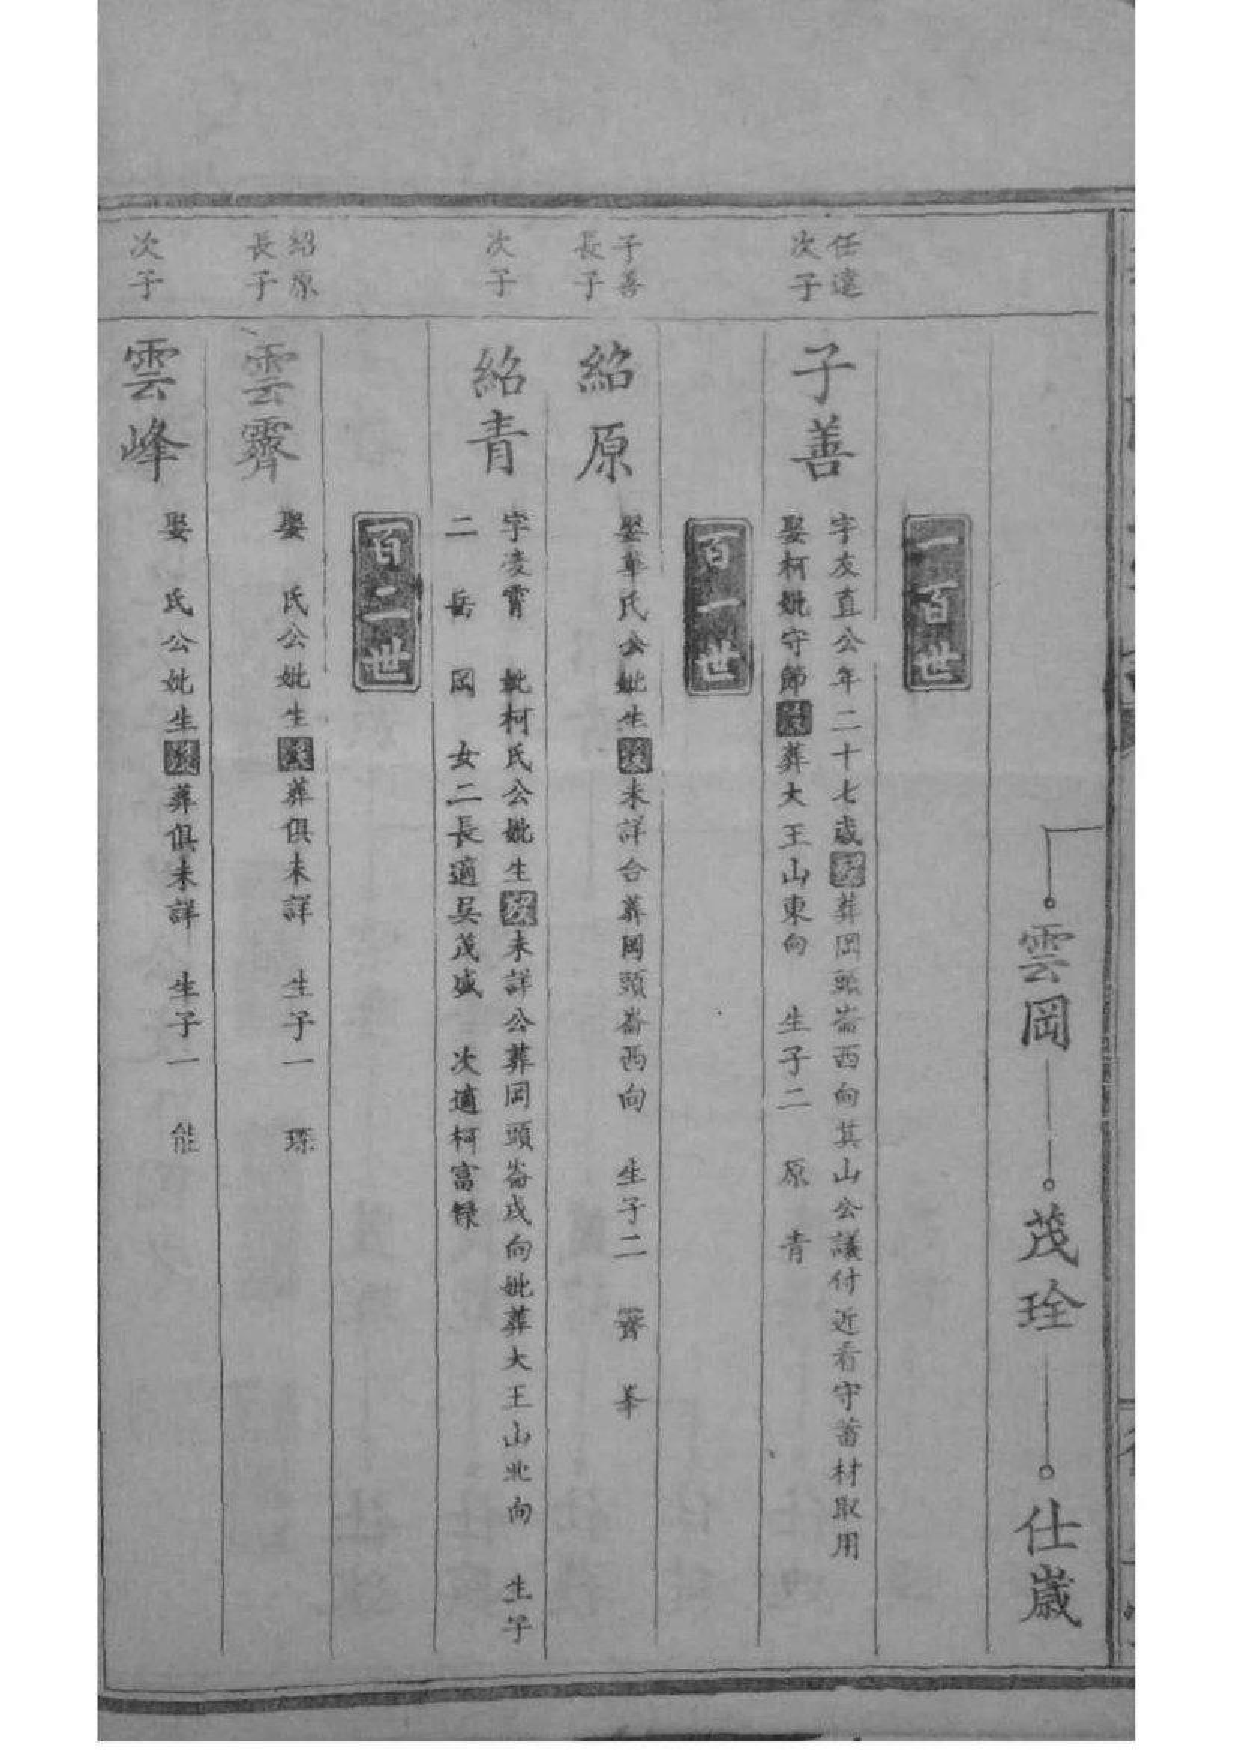 雲岡 茂琀 仕嵗
一百世
任達次子
子善
字友直公年二十七歳歿葬岡頭崙西向其山公議付近看守蓄材取用
娶柯妣守節葬大王山東向 生子二 原 青
百一世
子善長子
紹原
娶辜氏公妣生歿未詳合葬岡頭崙西向 生子二 霽 峯
次子
紹青
字凌霄 妣柯氏公妣生歿未詳公葬岡頭崙戌向妣葬大王山北向 生子
二 岳 岡 女二長適吴茂盛 次適柯富祿
百二世
紹原長子
雲霽
娶 氏公妣生歿葬俱未詳 生子一 琛
次子
雲峰
娶 氏公妣生歿葬俱未詳 生子一 能